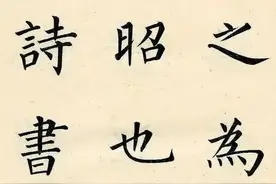 之為
昭也
詩書